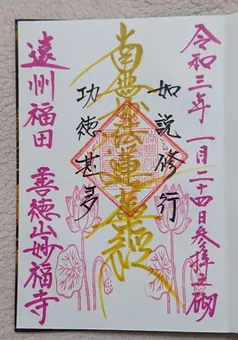 令和三年 一月二十四日参拝之砌
如説修行
南無妙法蓮華経
功徳甚多
遠州福田 善徳山妙福寺